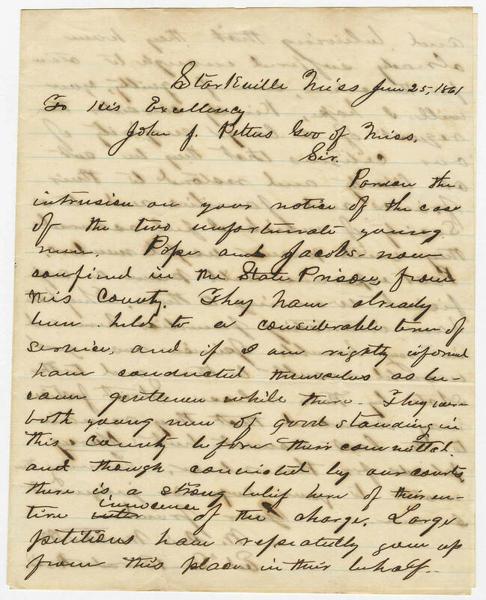 Starkville Miss June 25, 1861
To His Excellency
John J. Pettus Gov of Miss.
Sir.
Pardon the
intrusion on your notice of the case
of the two unfortunate young
men. Pope and Jacobs now
confined in the State Prison, from
this County. They have already
been held to a considerable term of
service, and if I am rightly informed
have conducted themselves as be-
came gentlemen while there. They were
both young men of good standing in
this county before their committal.
and though convicted by our courts,
there is a strong belief here of their en-
tire innocence of the charge. Large
petitions have repeatedly gone up
from this place in their behalf.